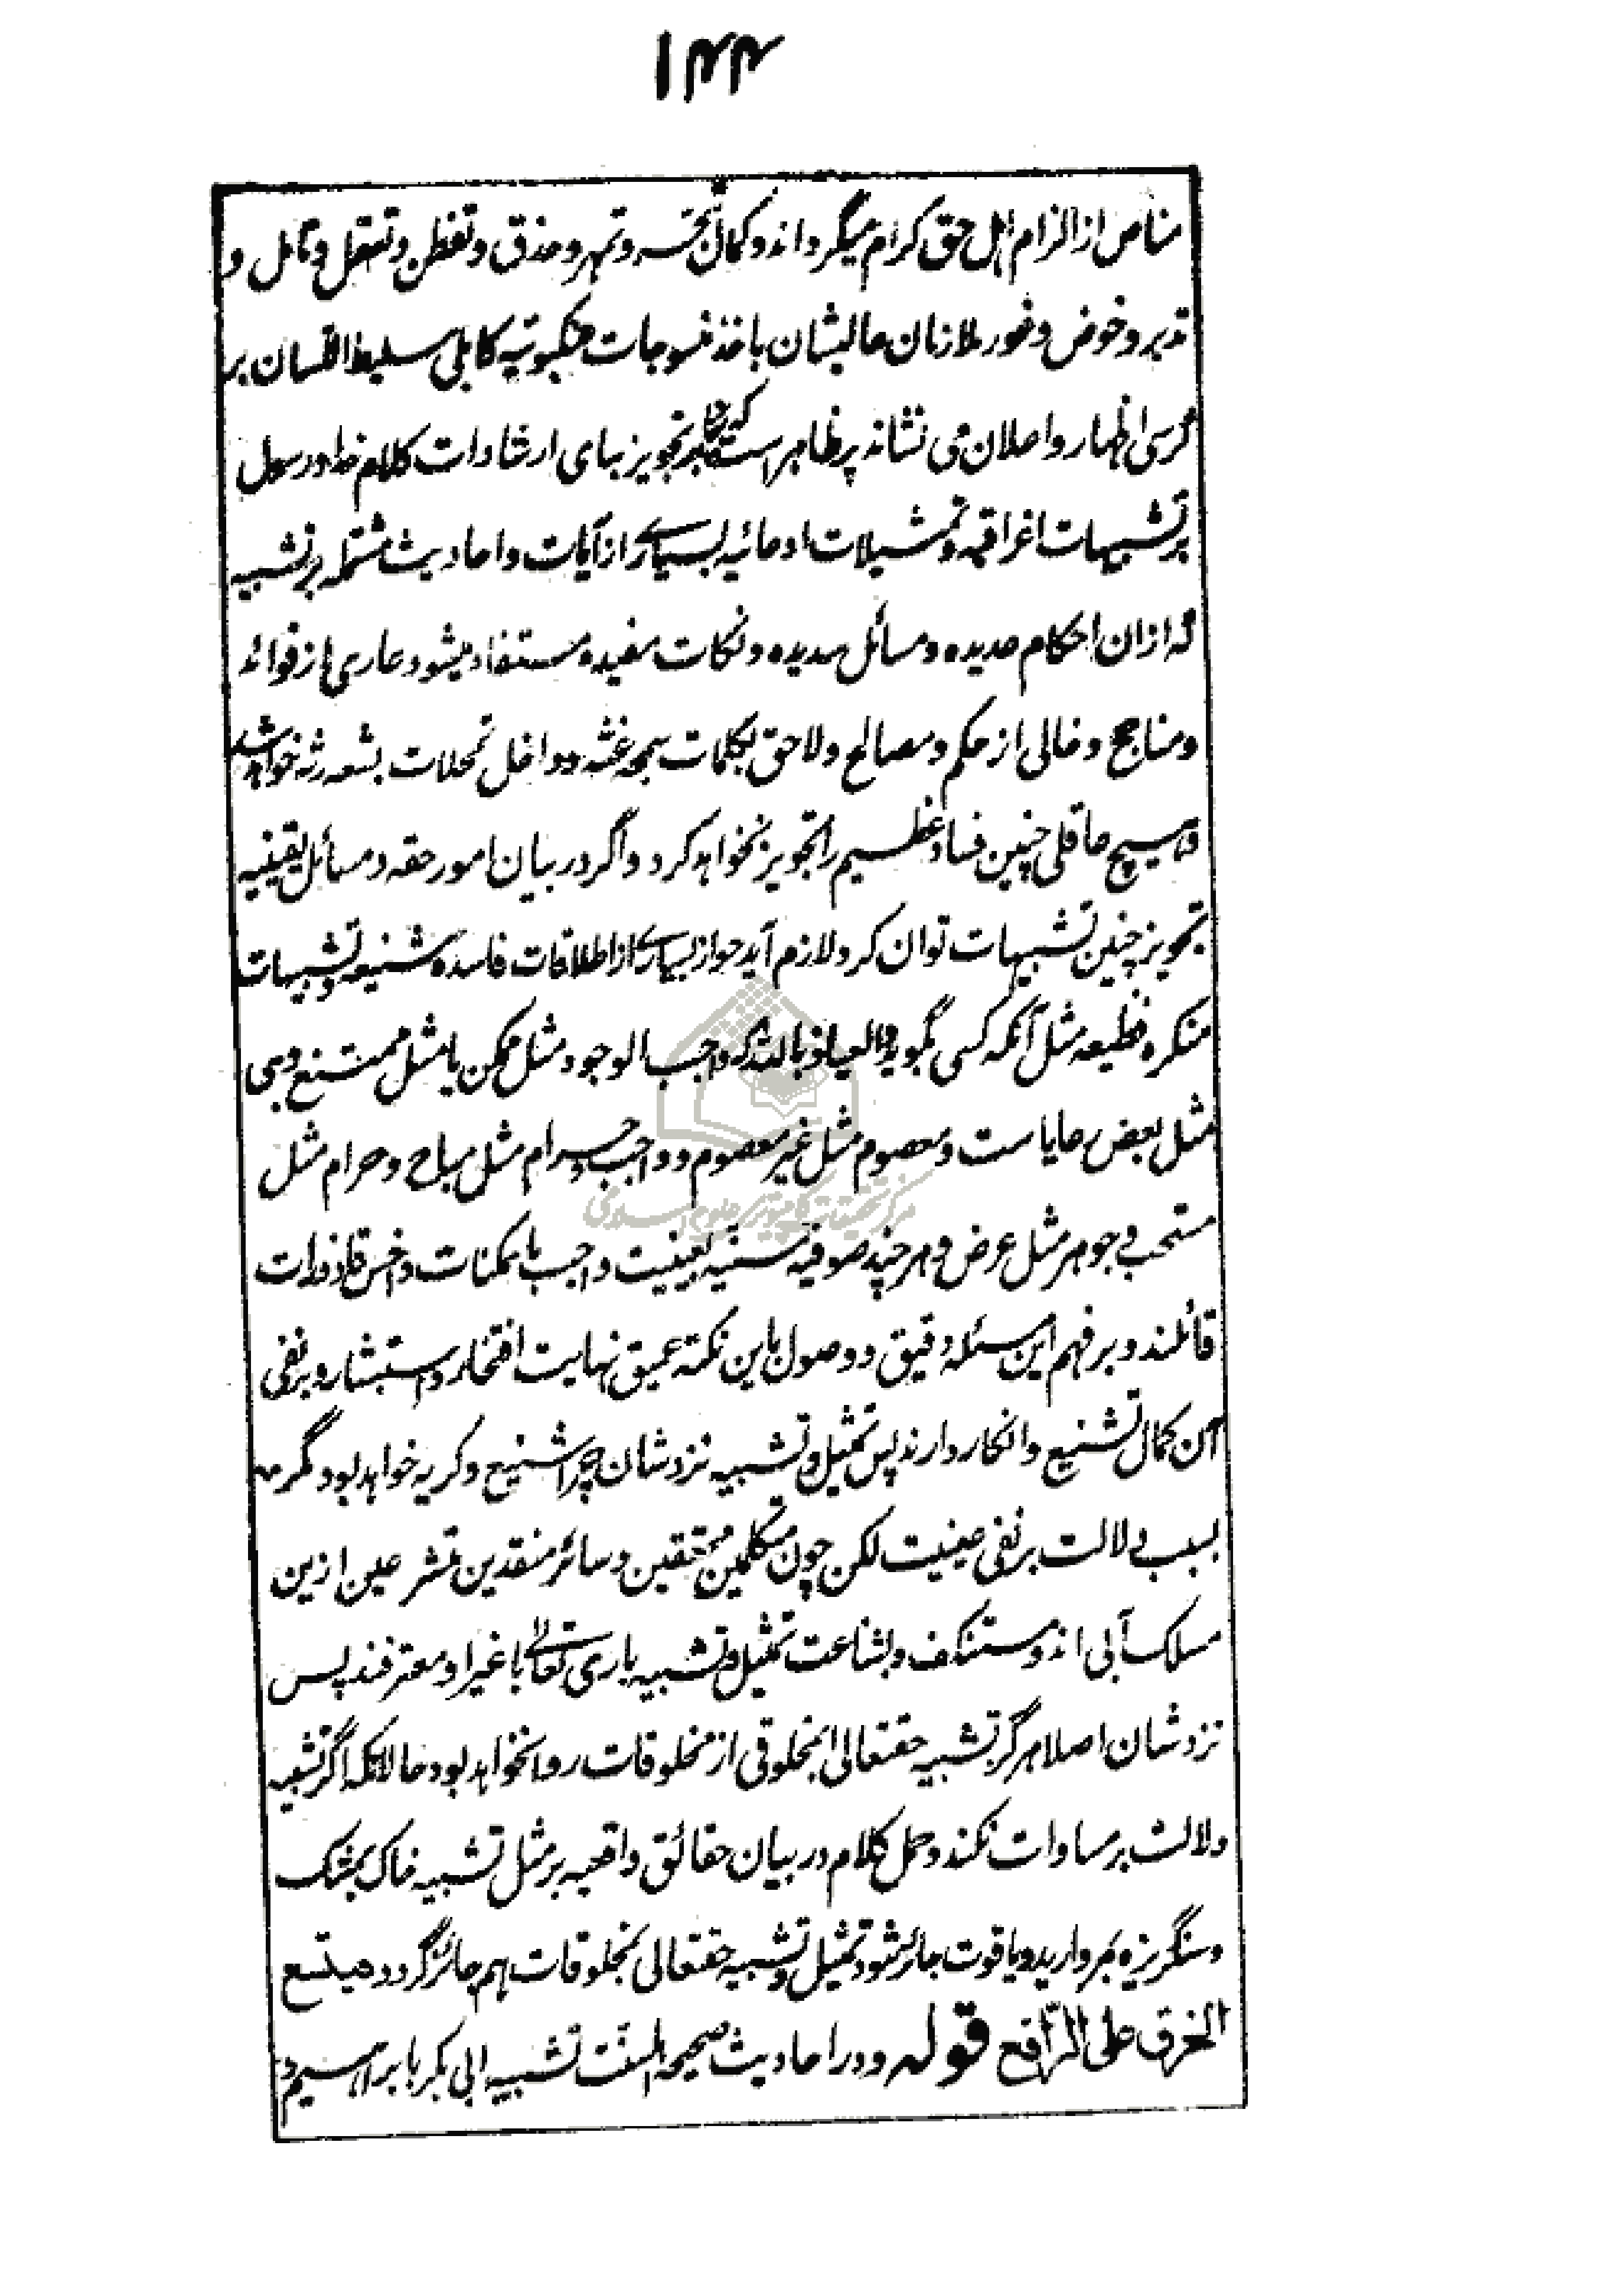 ۱۴۴
مناص از الزام اهل حق کرام میگرداند و کمال تبحر و تمهر و حذق و تفطن و تعقل و تامل و
تدبر و خوض و غور ملازمان عالیشان باخذ منسوجات عنکبوتیه کابلی سلیط اللسان بر
کرسی اظهار و اعلان می نشاند پر ظاهر است که هرگاه بر تجویز بنای ارشادات کلام خدا و رسول
بر تشبیهات اغراقیه و تمثیلات ادعائیه بسیاری از آیات و احادیث مشتمله بر تشبیه
که ازان احکام عدیده و مسائل سدیده و نکات مفیده مستفاد میشود عاری از فوائد
و مناجح و خالی از حکم و مصالح و لاحق بکلمات سمجه غثه و داخل تمحلات بشعه رثه خواهد شد
و هیچ عاقلی چنین فساد عظیم را تجویز نخواهد کرد و اگر در بیان امور حقه و مسائل یقینیه
تجویز چنین تشبیهات توان کرد لازم آید جواز بسیاری از اطلاقات فاسده شنیعه و تشبیهات
منکره فظیعه مثل آنکه کسی بگوید و العیاذ بالله که واجب الوجود مثل ممکن یا مثل ممتنع و نبی
مثل بعض رعایاست و معصوم مثل غیر معصوم و واجب و حرام مثل مباح و حرام مثل
مستحب و جوهر مثل عرض و هر چند صوفیه سنیه بعینیت واجب با ممکنات و اخس قاذورات
قائلند و بر فهم این مسئله دقیق و وصول باین نکته عمیق نهایت افتخار و استبشار و بر نفی
آن کمال تشنیع و انکار دارند پس تمثیل و تشبیه نزد شان چرا شنیع و کریه خواهد بود مگر
بسبب دلالت بر نفی عینیت لکن چون متکلمین محققین و سائر منقدین متشرعین ازین
مسلک آبی اند و مستنکف و بشناعت تمثیل و تشبیه باری تعالی با غیر او معترفند پس
نزد شان اصلا هرگز تشبیه حقتعالی بمخلوقی از مخلوقات روا نخواهد بود حالانکه اگر تشبیه
دلالت بر مساوات نکند و حمل کلام در بیان حقائق واقعیه بر مثل تشبیه خاک بمشک
و سنگریزه بمروارید و یاقوت جائز شود تمثیل و تشبیه حقتعالی بمخلوقات هم جائز گردد فیتسع
الخرق علی الراقع قوله و در احادیث صحیحه اهلسنت تشبیه ابی بکر بابراهیم و
مرکز تحقیقات کامپیوتری علوم اسلامی